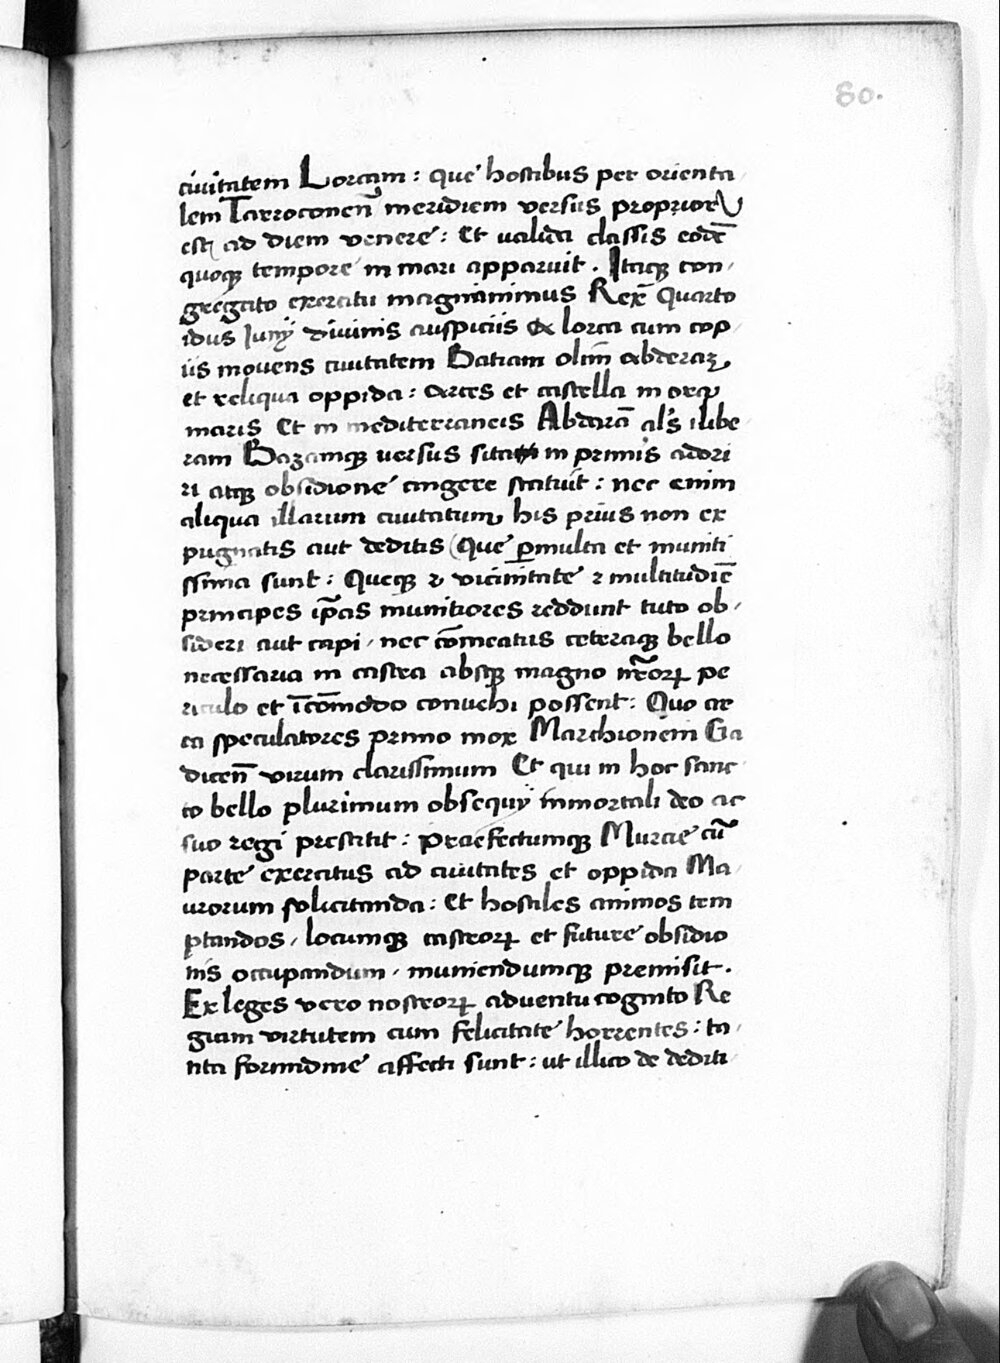 80.
ciuitatem Lorcam: que hostibus per orienta
lem Tarroconen̄ meridiem versus propior
est ad diem venere: Et valida classis eodē
quoqꝫ tempore in mari apparuit. Itaqꝫ con
gregato exercitu magnanimus Rex Quarto
idus Iunij diuinis auspitiis & lorca cum cop
iis mouens ciuitatem Batiam olim abderaꝫ
et reliqua oppida: arces et castella in
maris Et in mediterraneis Abderā als̄ ilibe
ram Bazamqꝫ versus sita in primis adori
ri atqꝫ obsidione cingere statuit: nec enim
aliqua illarum ciuitatum his prius non ex
pugnatis aut deditis (Que ꝑmulta et muniti
ssima sunt: Queqꝫ & vicinitate & multitudiē
principes ip̄as munitiores reddunt tuto ob
sideri aut capi, nec cōmeatus ceteraqꝫ bello
necessaria in castra absqꝫ magno nr̄orꝝ pe
riculo et īcōmodo conuehi possent: Quo cir
ca speculatores primo mox Marchionem Ga
dicen̄ virum clarissimum Et qui in hoc sanc
to bello plurimum obsequij inmortali deo ac
suo regi prestitit: Praefectumqꝫ Murcie cū
parte exercitus ad ciuitates et oppida Ma
urorum solicitanda: Et hostiles animos tem
ptandos, locumqꝫ castrorꝝ et future obsidio
nis occupandum, muniendumqꝫ premisit.
Ex leges vero nostrorꝝ aduentu cognito Re
giam virtutem cum felicitate horrentes: ta
nta formidine affecti sunt: ut illico de dediti